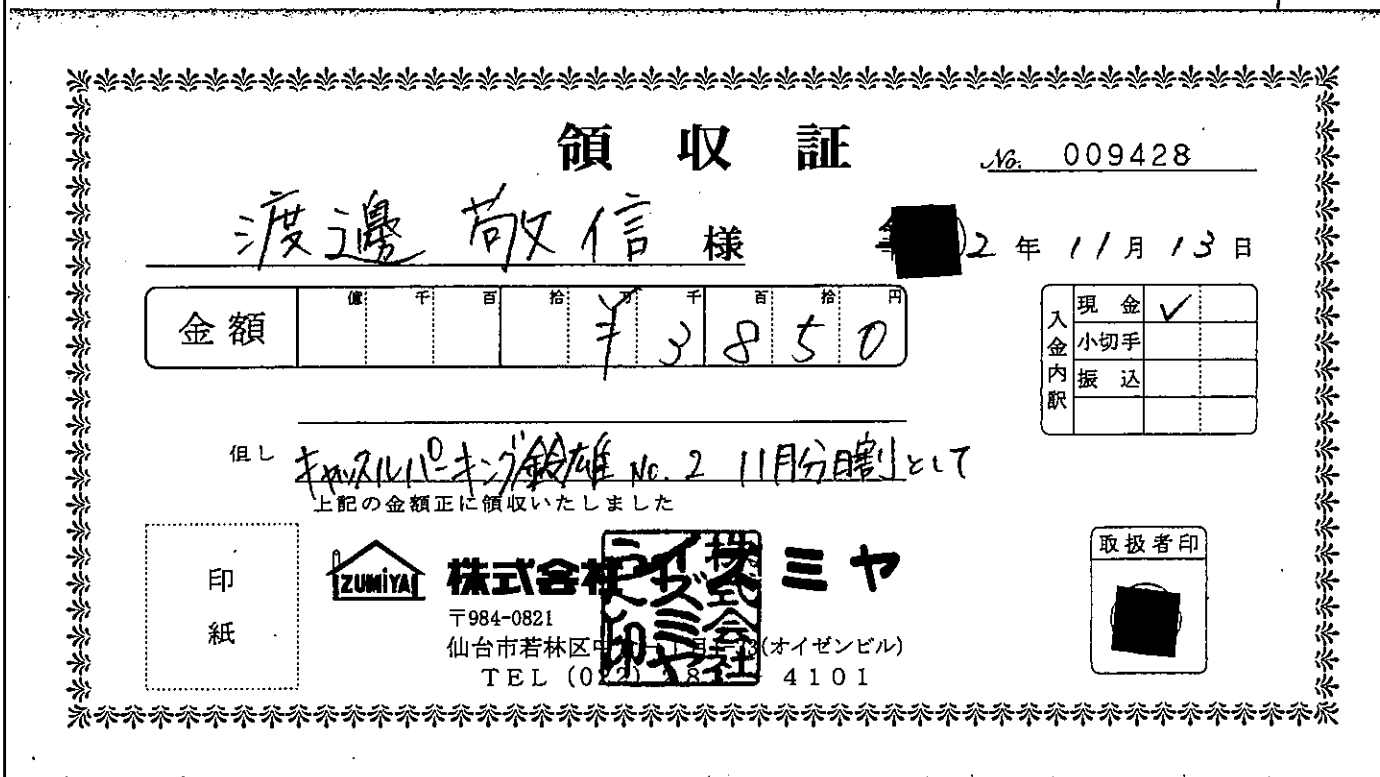 領収証
No. 009428
渡邊 敬信 様
2年11月13日
金額 億 千 百 拾 万 千 百 拾 円
¥3850
入金内訳
現金 ✓
小切手
振込
但し キャッスルパーキング鈴雄 No.2 11月分日割として
上記の金額正に領収いたしました
印紙
IZUMIYA
株式会社イズミヤ
〒984-0821
仙台市若林区中 (オイゼンビル)
TEL (022) 4101
取扱者印